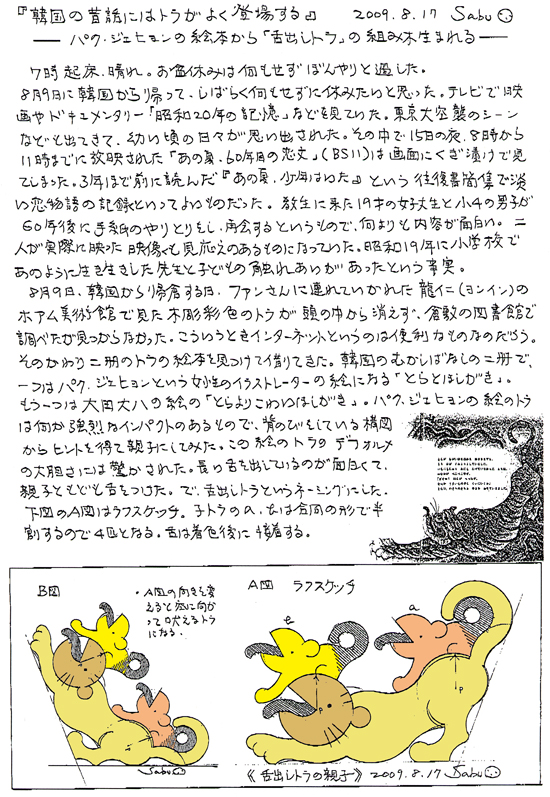 『韓国の昔話にはトラがよく登場する』 2009.8.17 Sabu
― パク・ジェヒョンの絵本から「舌出しトラ」の組み木生まれる ―
7時起床、晴れ。お盆休みは何もせずぼんやりと過した。
8月9日に韓国から帰って、しばらく何もせずに休みたいと思った。テレビで映
画やドキュメンタリー「昭和20年の記憶」などを見ていた。東京大空襲のシーン
なども出てきて、幼い頃の日々が思い出された。その中で15日の夜、8時から
11時までに放映された「あの夏、60年目の恋文」(BS11)は画面にくぎ漬けで見
てしまった。3年ほど前に読んだ『あの夏、少年はいた』という往復書簡集で淡
い恋物語の記録といってよいものだった。教生に来た19才の女子大生と小4の男子が
60年後に手紙のやりとりをし、再会するというもので、何よりも内容が面白い。二
人が実際に映った映像も見応えのあるものになっていた。昭和19年に小学校で
あのように生き生きした先生と子どもの触れあいがあったという事実。
8月9日、韓国から帰倉する日、ファンさんに連れていかれた龍仁(ヨンイン)の
ホアム美術館で見た木彫彩色のトラが頭の中から消えず、倉敷の図書館で
調べたが見つからなかった。こういうときインターネットというのは便利なものなのだろう。
そのかわり二冊のトラの絵本を見つけて借りてきた。韓国のむかしばなしの二冊で、
一つはパク・ジェヒョンという女性のイラストレーターの絵になる「とらとほしがき」。
もう一つは大田大八の絵の「とらよりこわいほしがき」。パク・ジェヒョンの絵のトラ
は何か強烈なインパクトのあるもので、背のびをしている構図
からヒントを得て親子にしてみた。この絵のトラのデフォルメ
の大胆さには驚かされた。長い舌を出しているのが面白くて、
親子ともども舌をつけた。で、舌出しトラというネーミングにした。
下図のA図はラフスケッチ。子トラのa、bは合同の形で半
割するので4匹となる。舌は着色後に接着する。
B図
・A図の向きを変
えると空に向か
って吠えるトラ
になる。
A図 ラフスケッチ
b
a
P
P
Sabu
《舌出しトラの親子》 2009.8.17 Sabu